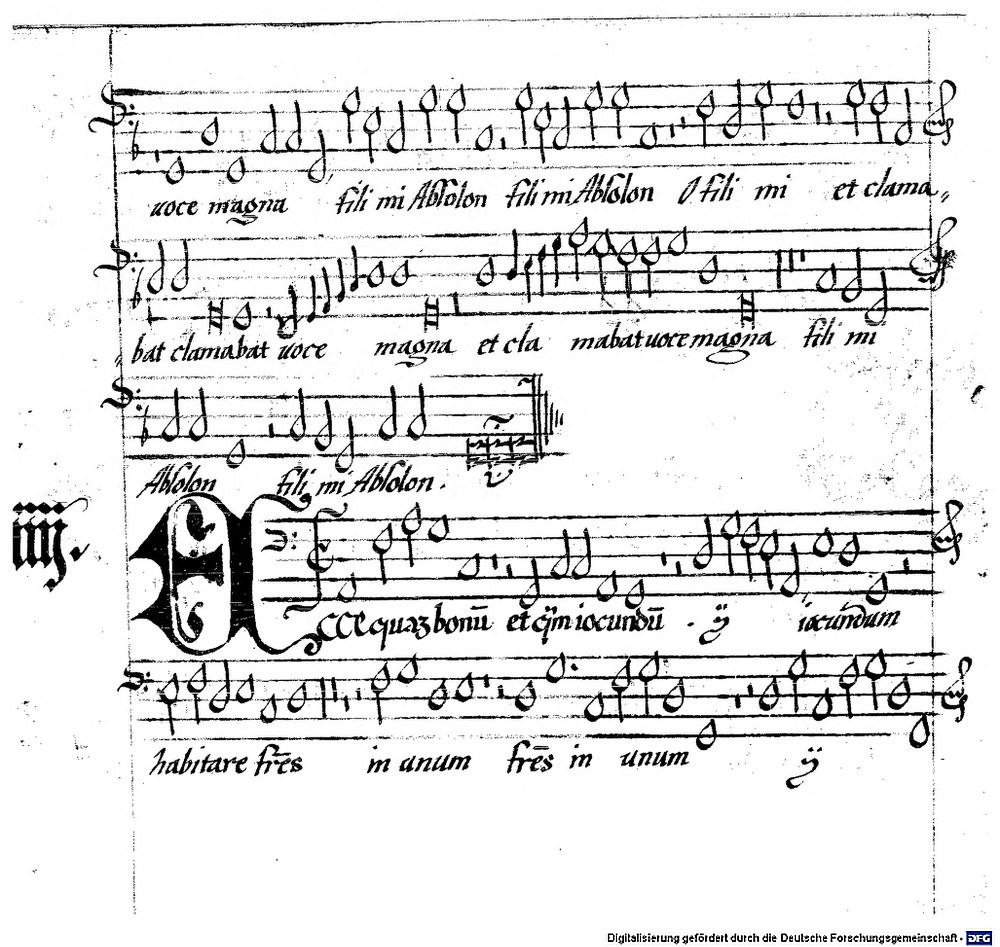 voce magna fili mi Absolon fili mi Absolon O fili mi et clama„
„bat clamabat voce magna et cla mabat voce magna fili mi
Absolon fili mi Absolon.
iiij.
Ecce quaꝫ bonū et q̈m iocundū . ij iocundum
habitare fr̄es in unum fr̄es in unum ij
Digitalisierung gefördert durch die Deutsche Forschungsgemeinschaft - DFG